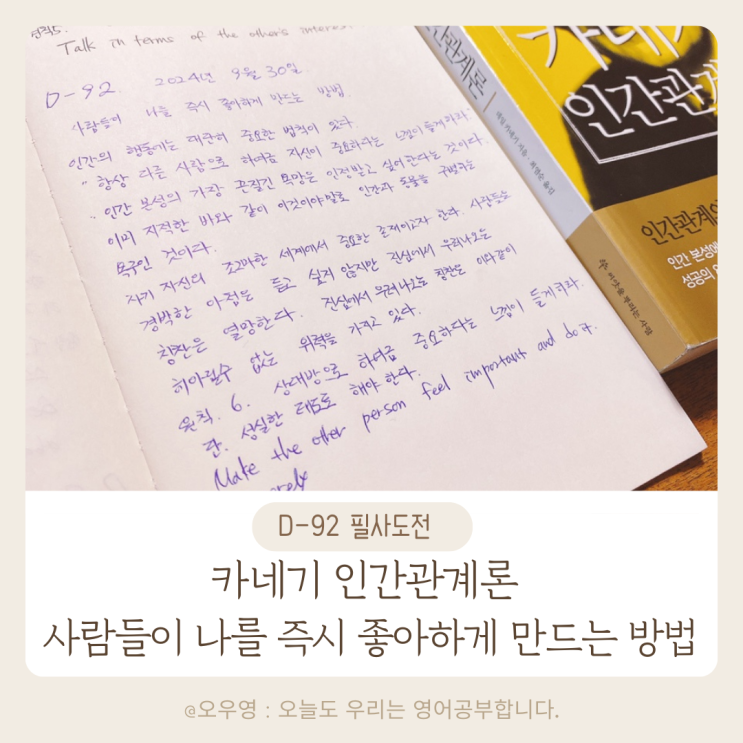 Talk in terms of the other's interest
D-92 2024년 9월 30일
사람들이 나를 즉시 좋아하게 만드는 방법
인간의 행동에는 대단히 중요한 법칙이 있다.
"항상 다른 사람으로 하여금 자신이 중요하다는 느낌이 들게 하라."
"인간 본성의 가장 끈질긴 욕망은 인정받고 싶어한다는 것이다.
이미 지적한 바와 같이 이것이야말로 인간과 동물을 구별하는
욕구인 것이다.
자기 자신의 조그마한 세계에서 중요한 존재이고자 한다. 사람들은
경박한 아첨은 듣고 싶지 않지만 진심에서 우러나오는
칭찬은 열망한다. 진심에서 우러나오는 칭찬은 이와같이
헤아릴수 없는 위력을 가지고 있다.
원칙. 6. 상대방으로 하여금 중요하다는 느낌이 들게 하라.
단. 성실한 태도로 해야 한다.
Make the other person feel important and do it
카네기
인간관계론
인간관계의
인간 본성에
성공의
D-92 필사도전
카네기 인간관계론
사람들이 나를 즉시 좋아하게 만드는 방법
@오우영 : 오늘도 우리는 영어공부합니다.